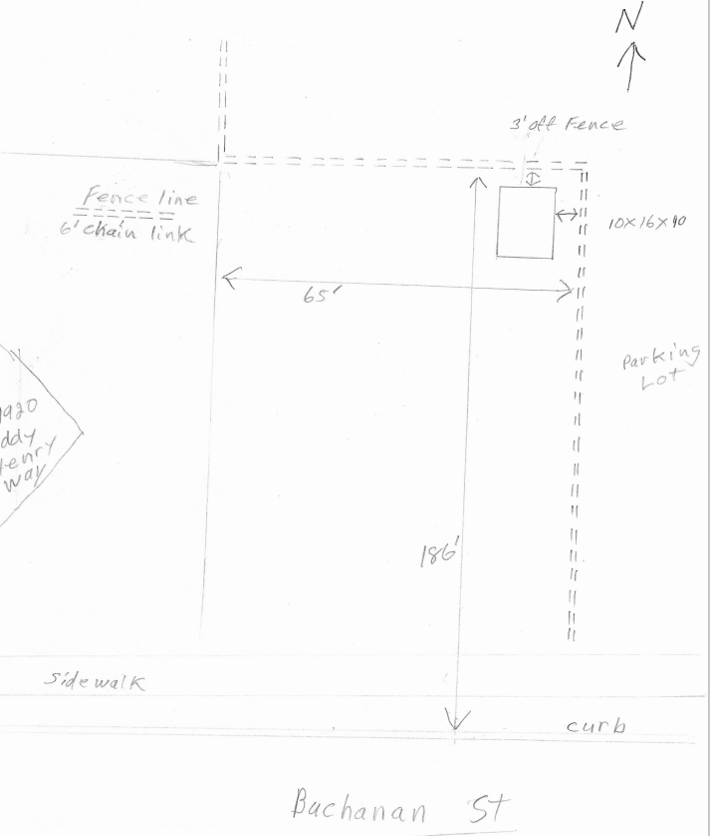 N
3' off Fence
Fence line
6' chain link
10x16x10
65'
Parking
Lot
1920
ddy
Henry
way
186'
Sidewalk
curb
Buchanan St